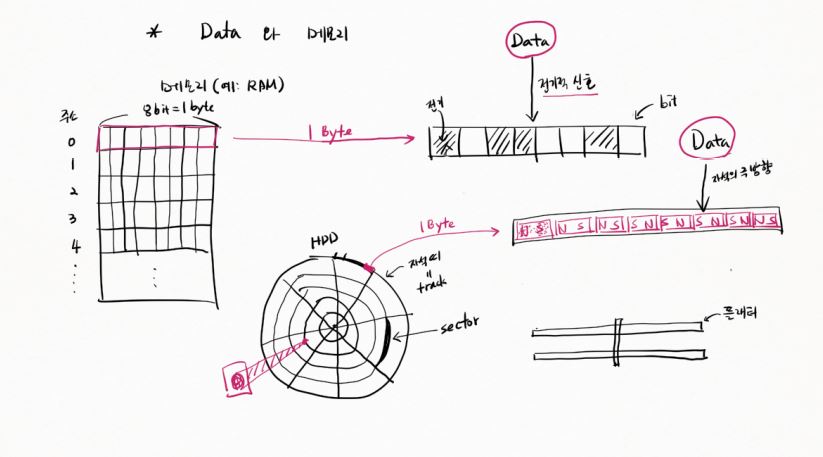 * Data 와 메모리
메모리 (예: RAM)
8bit = 1byte
주소
0
1
2
3
4
1 Byte
Data
전기적 신호
전기
bit
Data
자석의 극 방향
1 Byte
N S N S N S S N S N S N S N N S
HDD
자석 띠
=
track
sector
플래터